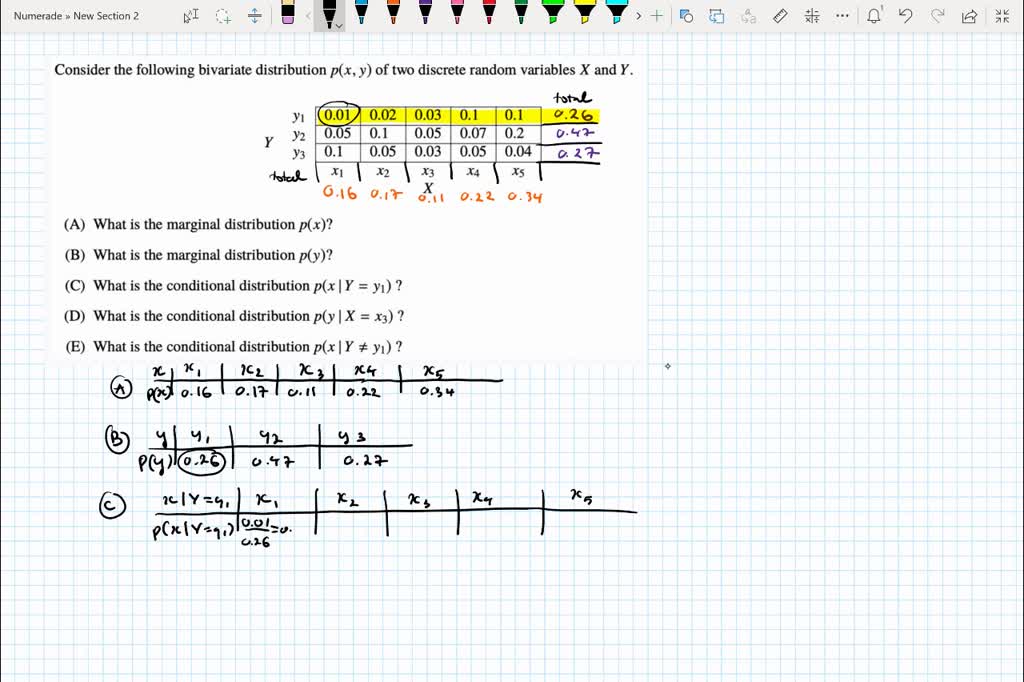 Numerade » New Section 2
Consider the following bivariate distribution p(x, y) of two discrete random variables X and Y.
total
y1 0.01 0.02 0.03 0.1 0.1 0.26
Y y2 0.05 0.1 0.05 0.07 0.2 0.47
y3 0.1 0.05 0.03 0.05 0.04 0.27
total x1 x2 x3 x4 x5
X
0.16 0.17 0.11 0.22 0.34
(A) What is the marginal distribution p(x)?
(B) What is the marginal distribution p(y)?
(C) What is the conditional distribution p(x | Y = y1) ?
(D) What is the conditional distribution p(y | X = x3) ?
(E) What is the conditional distribution p(x | Y ≠ y1) ?
A x x1 x2 x3 x4 x5
P(x) 0.16 0.17 0.11 0.22 0.34
B y y1 y2 y3
P(y) 0.26 0.47 0.27
C x|Y=y1 x1 x2 x3 x4 x5
P(x|Y=y1) 0.01 =0.
0.26